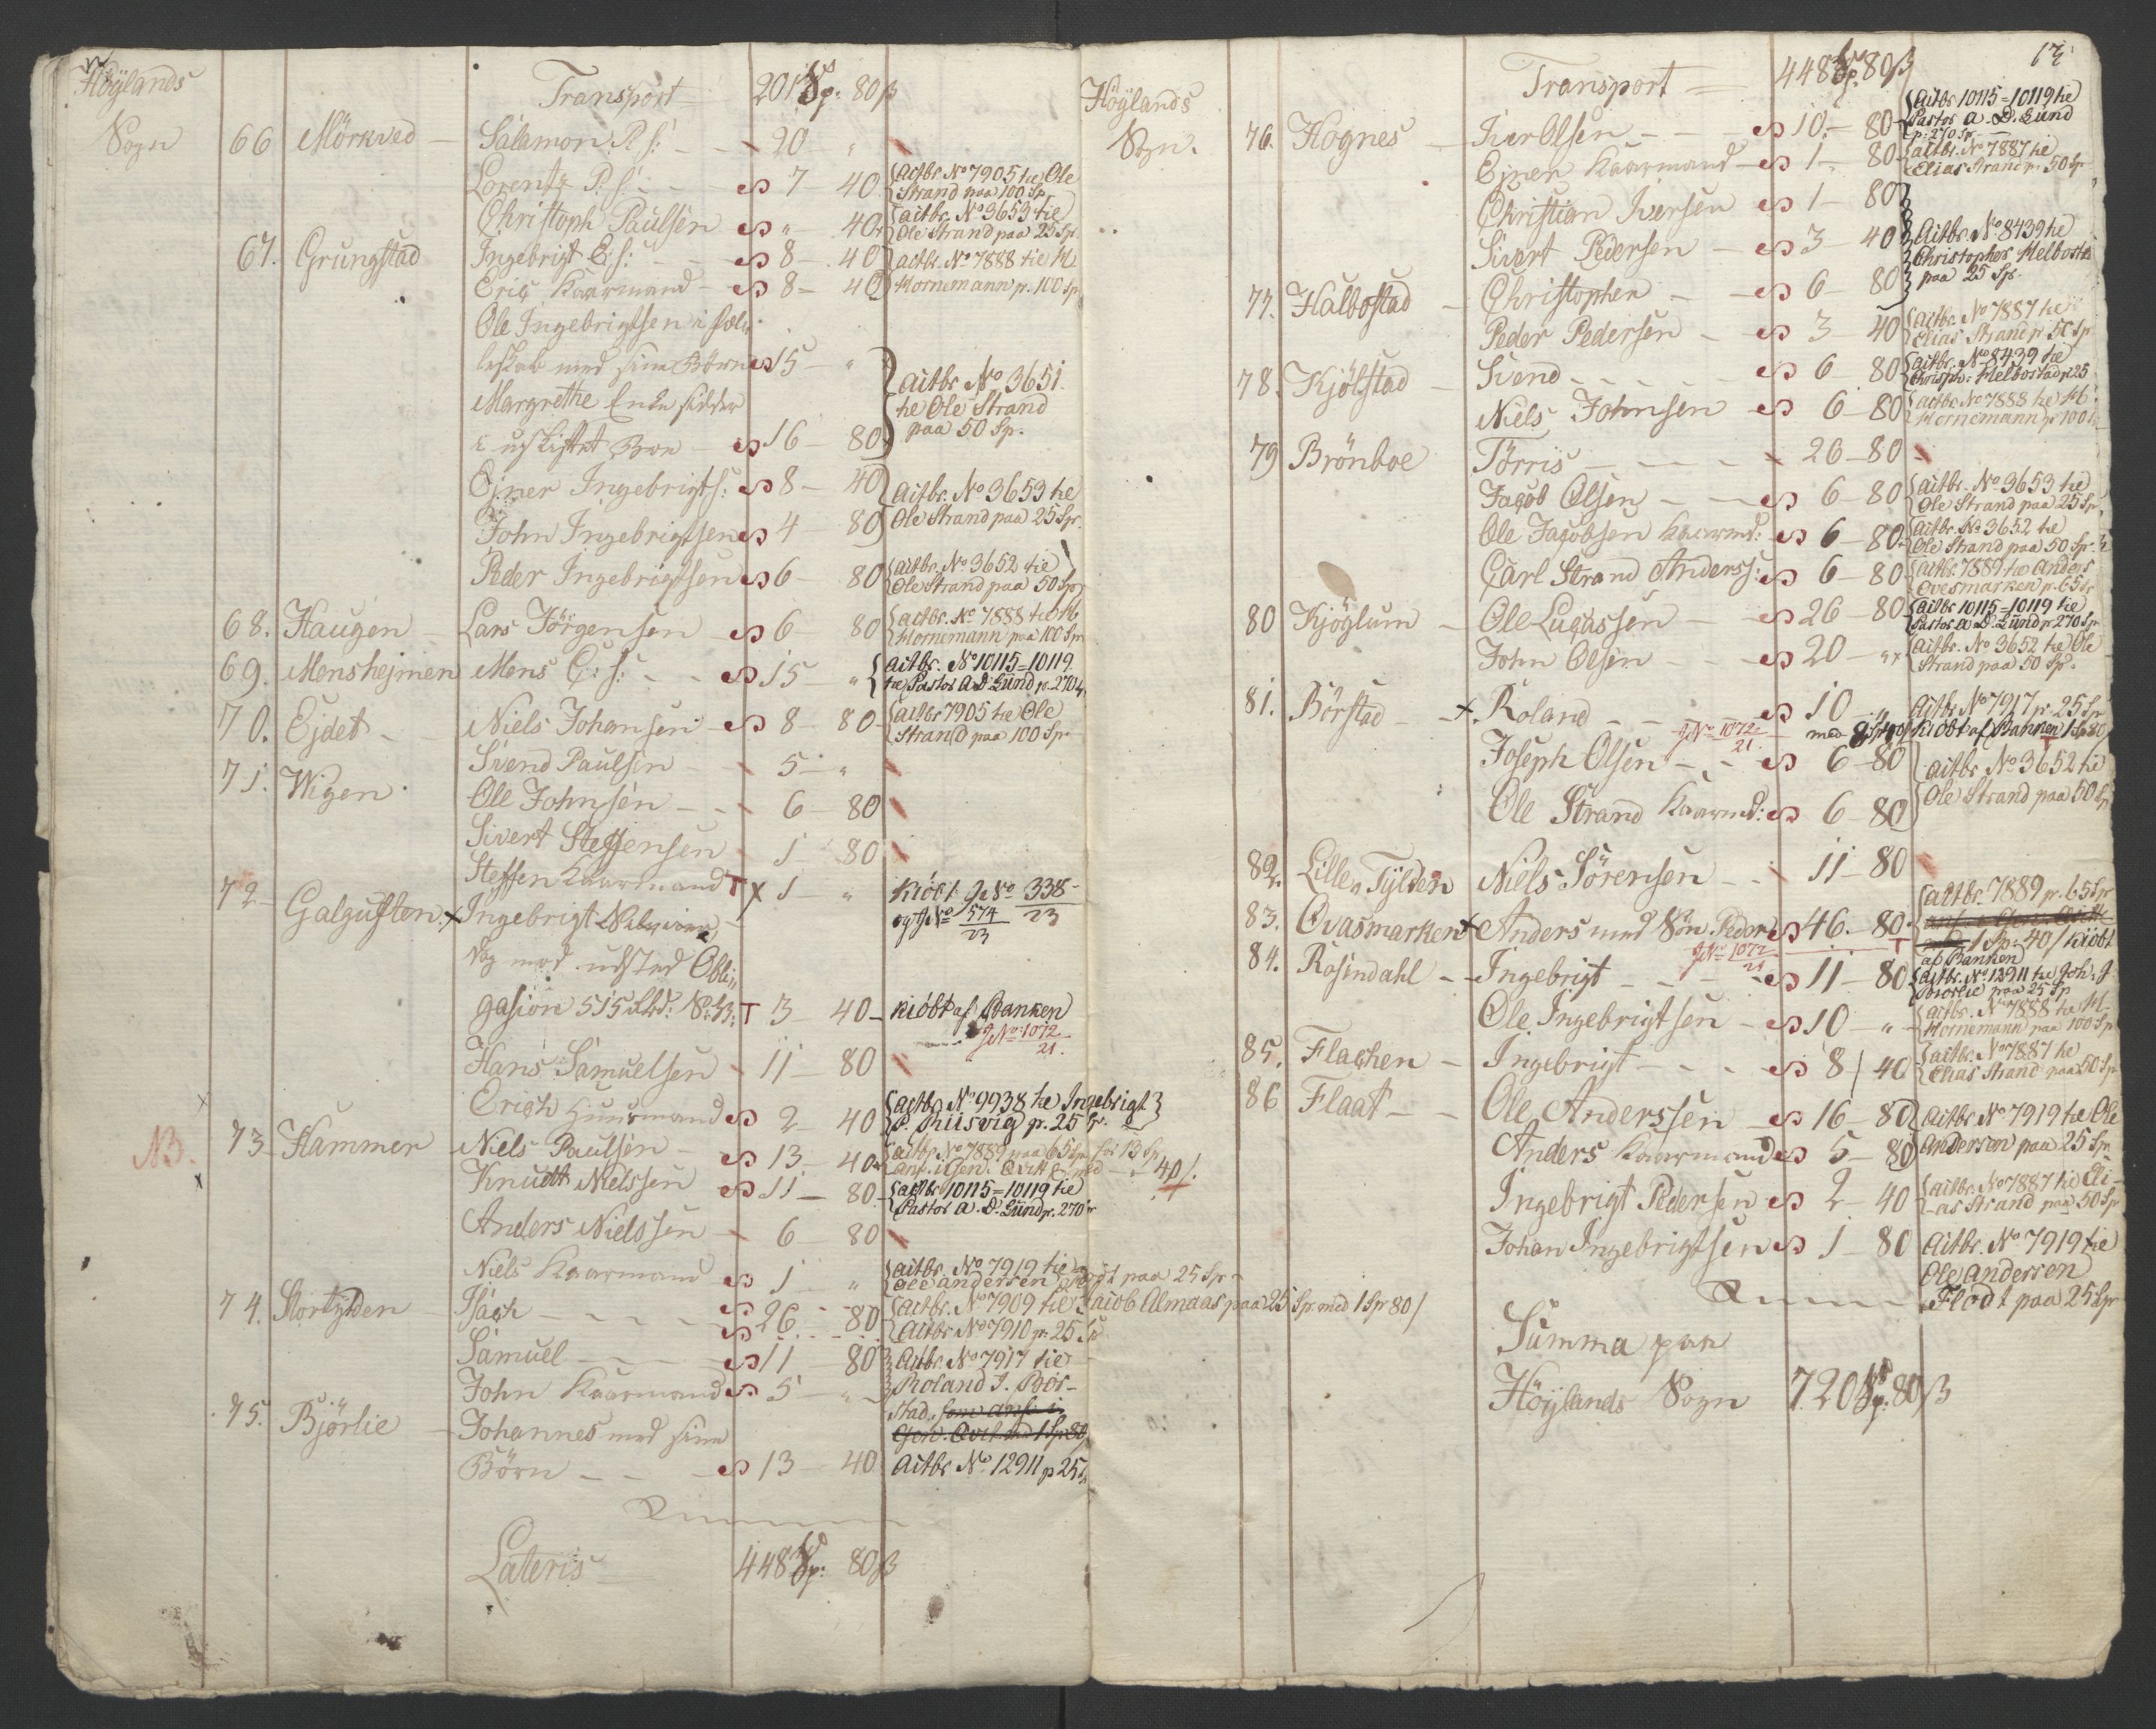 Höÿlands Transport 201 Sp: 80 ß
Sogn 66 Mörkved Salamon P. S: 20 "
Lorentz P. S: 7 40 actbr No 7905 tie Ole
Strand paa 100 Sp
Christoph Paulsen " 40 aitbr. No 3653 tie
Ole Strand paa 25 Sp
67. Grungstad Ingebrigt E. S: 8 40 aitbr. No 7888 tie H.
Eric Kaarmand 8 40 Hornemann p. 100 Sp
Ole Ingebrigtsen i fæle
leskab med sine Børn 15 "
Margrethe Enke sidder aitbr No 3651
i uskiftet Boe 16 80 tie Ole Strand
paa 50 Sp.
Ejner Ingebrigts: 8 40 aitbr. No 3653 tie
John Ingebrigtsen 4 80 Ole Strand paa 25 Sp.
Peder Ingebrigtsen 6 80 aitbr. No 3652 tie
Ole Strand paa 50 Sp
68. Haugen Lars Jörgensen 6 80 actbr. No 7888 tie H
Hornemann paa 100 Sp
69. Menshejmen Mens C: S: 15 " aitbr. No 10115=10119
tie Pastor A. D. Lund p. 270
70. Ejdet Niels Johansen 8 80 aitbr 7905 tie Ole
Strand paa 100 Sp
71. Wigen Svend Paulsen 5 "
Ole Johnsen 6 80
Sivert Steffensen 1 80
Steffen Kaarmand T x 1 " kiöbt No 338
23
72 Galguften x Ingebrigt og No 574
23
og mod udsted Obli"
gasion 515 T 3 40 kiöbt af Banken
No 1072
21.
Hans Samuelsen 11 80
Erich Huusmand 2 40 aitbr No 9938 tie Ingebrigt
Riisvig p. 25 Sp.
NB. 73 Hammer Niels Paulsen 13 40 aitbr No 7889 paa 65 Sp for 13 Sp
anf. i Gen. Qvitt 40 /.
Knudt Nielssen 11 80 aitbr 10115=10119 tie
Pastor A. D. Lund p. 270
Anders Nielssen 6 80
Niels Kaarmand 1 " aitbr. No 7919 tie
Ole Andersen Flodt paa 25 Sp
74. Stortylden Isach 26 80 aitbr. No 7909 tie Jacob Almaas paa 25 Sp. med 1 Sp 80 /
Aitbr No 7910 p. 25 Sp
Samuel 11 80 Aitbr. No 7917 tie
John Kaarmand 5 " Roland J. Bör-
stad, som anf. i
75. Bjórlie Johannes med sine Gen. Qvit. 1 Sp 80
Börn 13 40 Aitbr No. 12911 p 25 Sp
Lateris 448 Sp: 80 ß

17
Höÿlands Transport 448 Sp. 80 ß
Sogn. 76. Hognes Iver Olsen 10 80 Aitbr 10115=10119 tie
Pastor A. D. Lund
p. 270 Sp
Ejner Kaarmand 1 80 aitbr. No 7887 tie
Elias Strand p. 50 Sp
Christian Iversen 1 80
Sivert Pedersen 3 40 Aitbr No 8439 tie
Christopher Melbostad
77. Halbostad Christopher 6 80 paa 25 Sp.
Peder Pedersen 3 40 aitbr. No 7887 tie
Elias Strand p 50 Sp
78. Kjölstad Svend 6 80 aitbr. No 8439 tie
Christph: Melbostad p 25
Niels Johnsen 6 80 aitbr. No 7888 tie H.
Hornemann p 100
79 Brönboe Törris 26 80
Jacob Olsen 6 80 aitbr. No 3653 tie
Ole Strand paa 25 Sp.
Ole Jacobsen Kaarmd: 6 80 aitbr. No 3652 tie
Ole Strand paa 50 Sp.
Carl Strand Anders S: 6 80 aitbr. 7889 tie Anders
Ovesmarken p. 65 Sp
80 Kjöglum Ole Lucassen 26 80 aitbr 10115=10119 tie
Pastor A. D. Lund p 270 Sp
John Olsen 20 " aitbr. No 3652 tie Ole
Strand paa 50 Sp.
81. Börstad x Roland 10 " Aitbr No 7917 p. 25 Sp
No 1072 med kiöbt af Banken 1 Sp 80
21.
Joseph Olsen 6 80 aitbr No 3652 tie
Ole Strand Kaarmd: 6 80 Ole Strand paa 50 Sp
82. Lille Tÿlden Niels Sörensen 11 80
83. Ovasmarken x Anders med Sön Peder 46 80 aitbr. 7889 p. 65 Sp
anf. i Gen. Qvitt
No 1072 T 1 Sp. 40 / kiöbt
21 af Banken
84. Rosendahl Ingebrigt 11 80 aitbr. No 12911 tie Joh. J.
Biorlie paa 25 Sp
Ole Ingebrigtsen 10 " aitbr. No 7888 tie H.
Hornemann paa 100 Sp
85. Flachen Ingebrigt 8 40 aitbr. No 7887 tie
Elias Strand paa 50 Sp
86 Flaat Ole Anderssen 16 80 Aitbr No 7919 tie Ole
Anders Kaarmand 5 80 Andersen paa 25 Sp
Ingebrigt Pedersen 2 40 aitbr. No 7887 tie Eli-
as Strand paa 50 Sp
Johan Ingebrigtsen 1 80 Aitbr. No 7919 tie
Ole Andersen
Flodt paa 25 Sp
Summa paa
Höÿlands Sogn 720 Sp: 80 ß